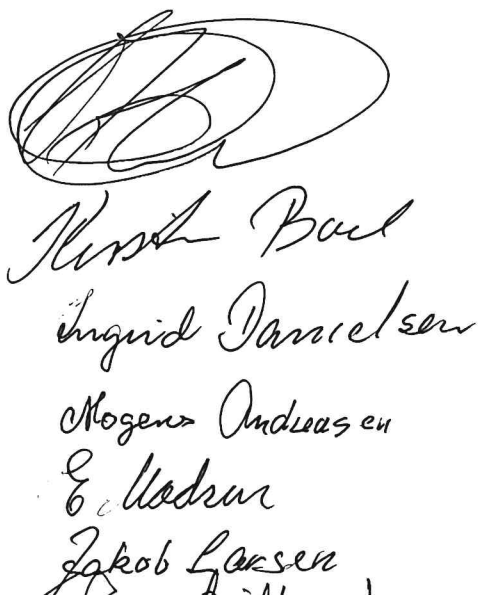 Kirstin Boel
Ingrid Danielsen
Mogens Andreasen
E. Madsen
Jakob Larsen